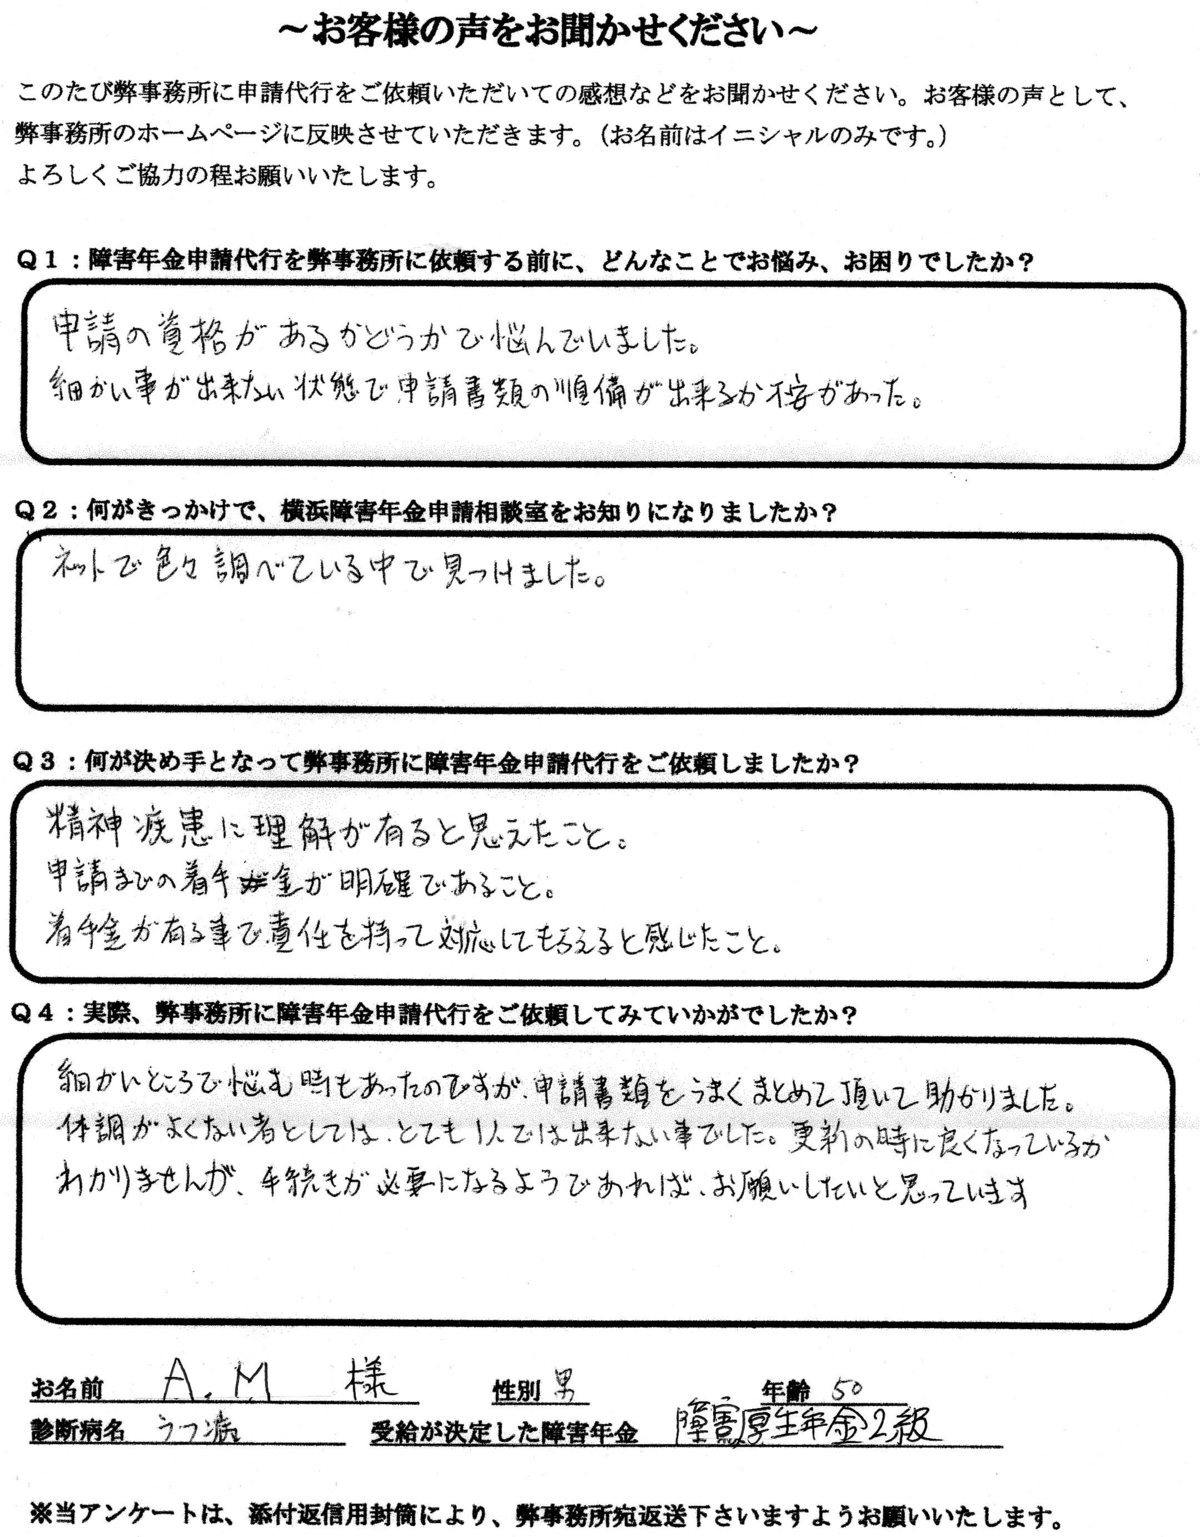 ～お客様の声をお聞かせください～
このたび弊事務所に申請代行をご依頼いただいての感想などをお聞かせください。お客様の声として、
弊事務所のホームページに反映させていただきます。（お名前はイニシャルのみです。）
よろしくご協力の程お願いいたします。
Q１：障害年金申請代行を弊事務所に依頼する前に、どんなことでお悩み、お困りでしたか？
申請の資格があるかどうかで悩んでいました。
細かい事が出来ない状態で申請書類の準備が出来るか不安があった。
Q２：何がきっかけで、横浜障害年金申請相談室をお知りになりましたか？
ネットで色々調べている中で見つけました。
Q３：何が決め手となって弊事務所に障害年金申請代行をご依頼しましたか？
精神疾患に理解が有ると思えたこと。
申請までの着手金が明確であること。
着手金が有る事で、責任を持って対応してもらえると感じたこと。
Q４：実際、弊事務所に障害年金申請代行をご依頼してみていかがでしたか？
細かいところで悩む時もあったのですが、申請書類をうまくまとめて頂いて助かりました。
体調がよくない者としては、とても1人では出来ない事でした。更新の時に良くなっているか
わかりませんが、手続きが必要になるようであれば、お願いしたいと思っています
お名前 A.M 様 性別 男 年齢 50
診断病名 うつ病 受給が決定した障害年金 障害厚生年金2級
※当アンケートは、添付返信用封筒により、弊事務所宛返送下さいますようお願いいたします。